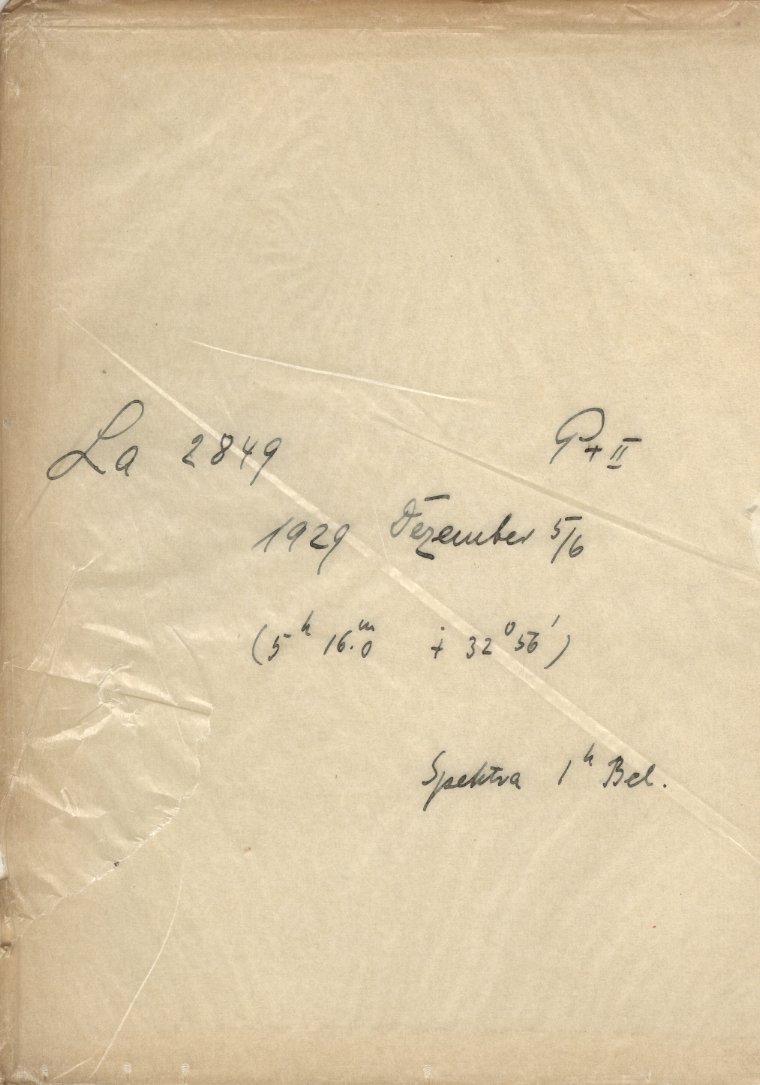 La 2849 P+II
1929 Dezember 5/6
(5ʰ 16ᵐ.0 + 32° 56')
Spektra 1ʰ Bel.